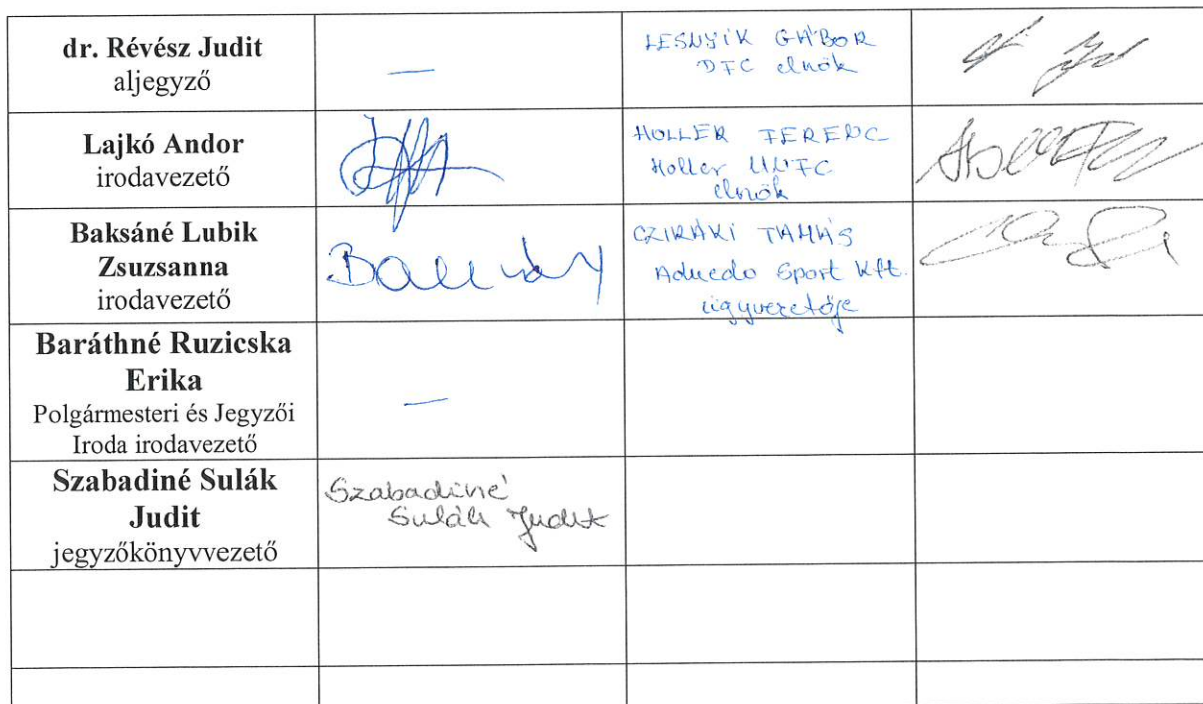 dr. Révész Judit
aljegyző
—
LESNYIK GÁBOR
DFC elnök
Lajkó Andor
irodavezető
HOLLER FERENC
Holler UNFC
elnök
Baksáné Lubik
Zsuzsanna
irodavezető
CZIRÁKI TAMÁS
Aducedo Sport Kft.
ügyvezetője
Baráthné Ruzicska
Erika
Polgármesteri és Jegyzői
Iroda irodavezető
—
Szabadiné Sulák
Judit
jegyzőkönyvvezető
Szabadiné
Sulák Judit